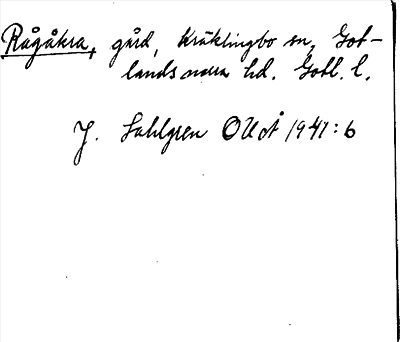 Rågåkra, gård, Kräklingbo sn, Got-
lands norra hd. Gotl. l.
J. Sahlgren OUÅ 1941:6